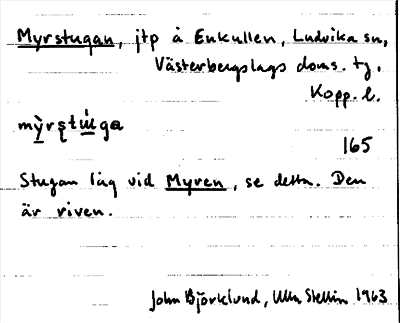 Myrstugan, jtp å Enkullen, Ludvika sn,
Västerbergslags doms. tg,
Kopp. l.
165
Stugan låg vid Myren, se detta. Den
är riven.
John Björklund, Ulla Stellin 1963